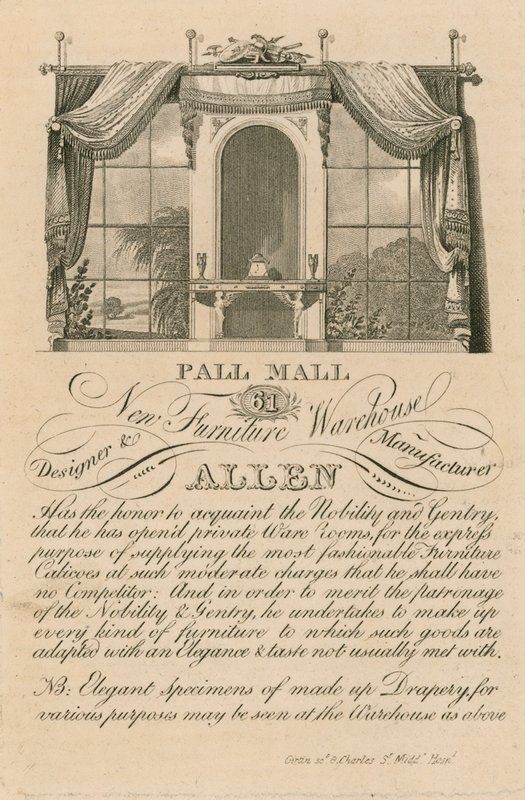 PALL MALL
61
New Furniture Warehouse
Designer & Manufacturer
ALLEN
Has the honor to acquaint the Nobility and Gentry,
that he has open'd private Ware rooms, for the express
purpose of supplying the most fashionable Furniture
Calicoes at such moderate charges that he shall have
no Competitor: And in order to merit the patronage
of the Nobility & Gentry, he undertakes to make up
every kind of furniture to which such goods are
adapted with an Elegance & taste not usually met with.
NB: Elegant Specimens of made up Drapery, for
various purposes may be seen at the Warehouse as above
Girtin sct. 8, Charles St. Middx. Hospl.